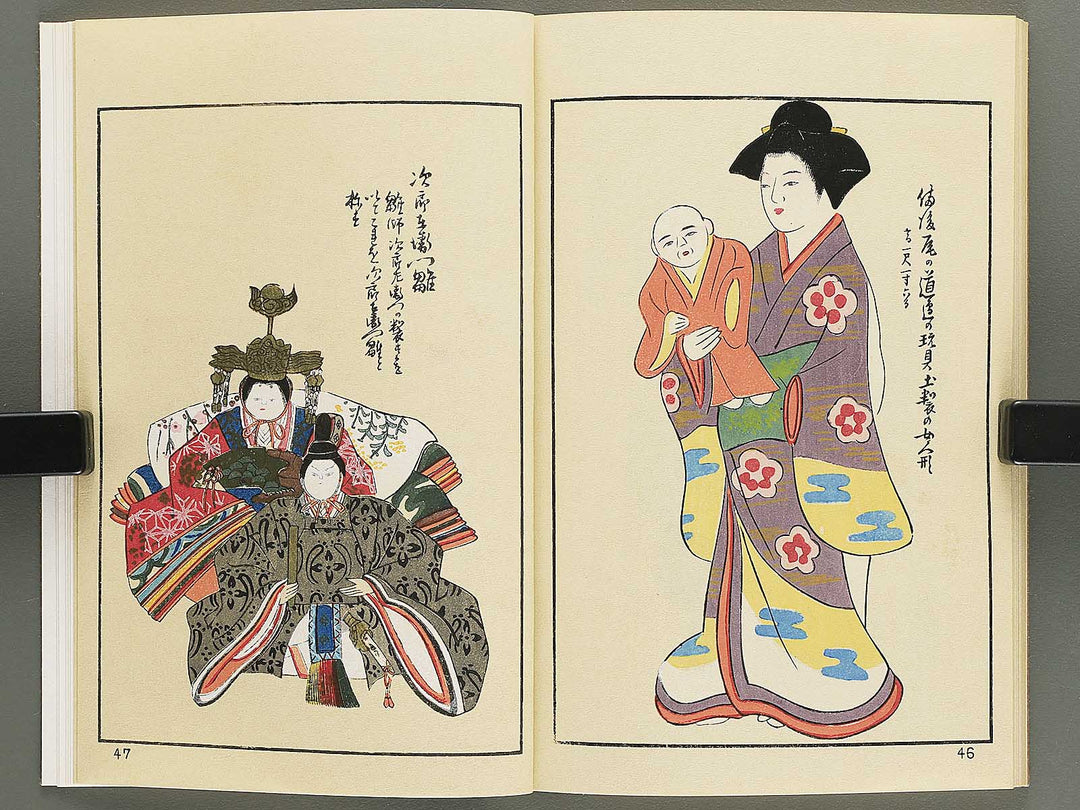 備後尾の道邊の玩具土製の女人形
高一尺一寸六分
46
次郎左衛門雛
雛師次郎左衛門の製せるを
以てこれを次郎左衛門雛と
称す
47